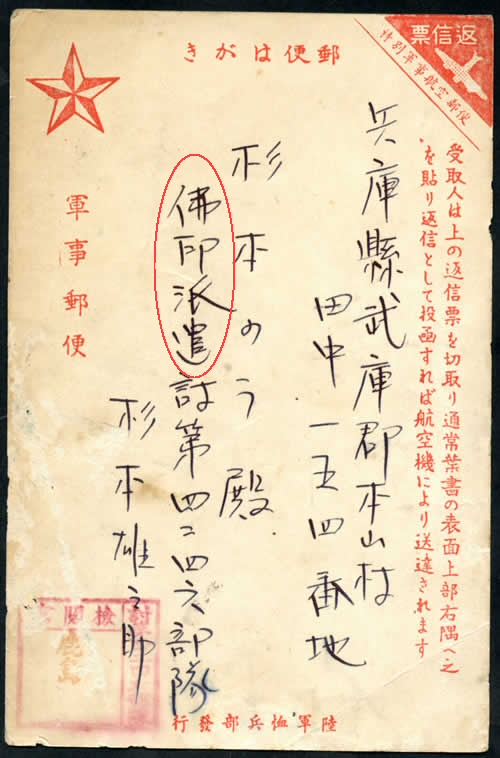 郵便はがき
返信票
特別軍事航空郵便
受取人は上の返信票を切取り通常葉書の表面上部右隅へ之
を貼り返信として投函すれば航空機により送達されます
兵庫縣武庫郡本山村
田中一五四番地
杉本のう殿
佛印派遣討第四二四六部隊
杉本雄之助
軍事郵便
檢閲
鹿島
陸軍恤兵部發行